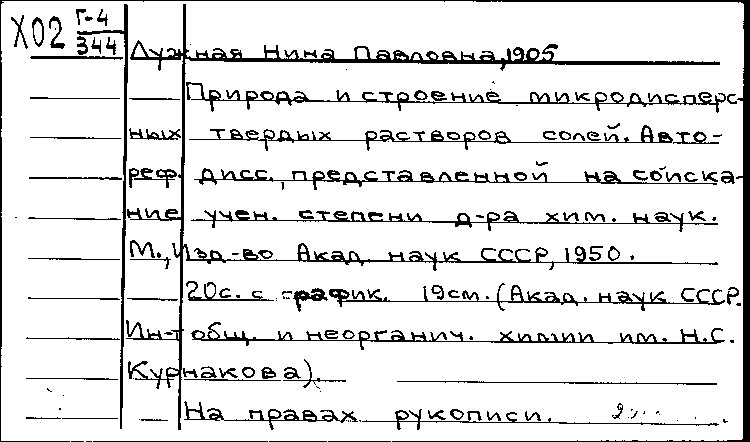 Х02 Г-4/344
Лужная Нина Павловна, 1905
Природа и строение микродисперс-
ных твердых растворов солей. Авто-
реф. дисс., представленной на соиска-
ние учен. степени д-ра хим. наук.
М., Изд-во Акад. наук СССР, 1950.
20с. с график. 19см. (Акад. наук СССР.
Ин-т общ. и неорганич. химии им. Н.С.
Курнакова).
На правах рукописи.